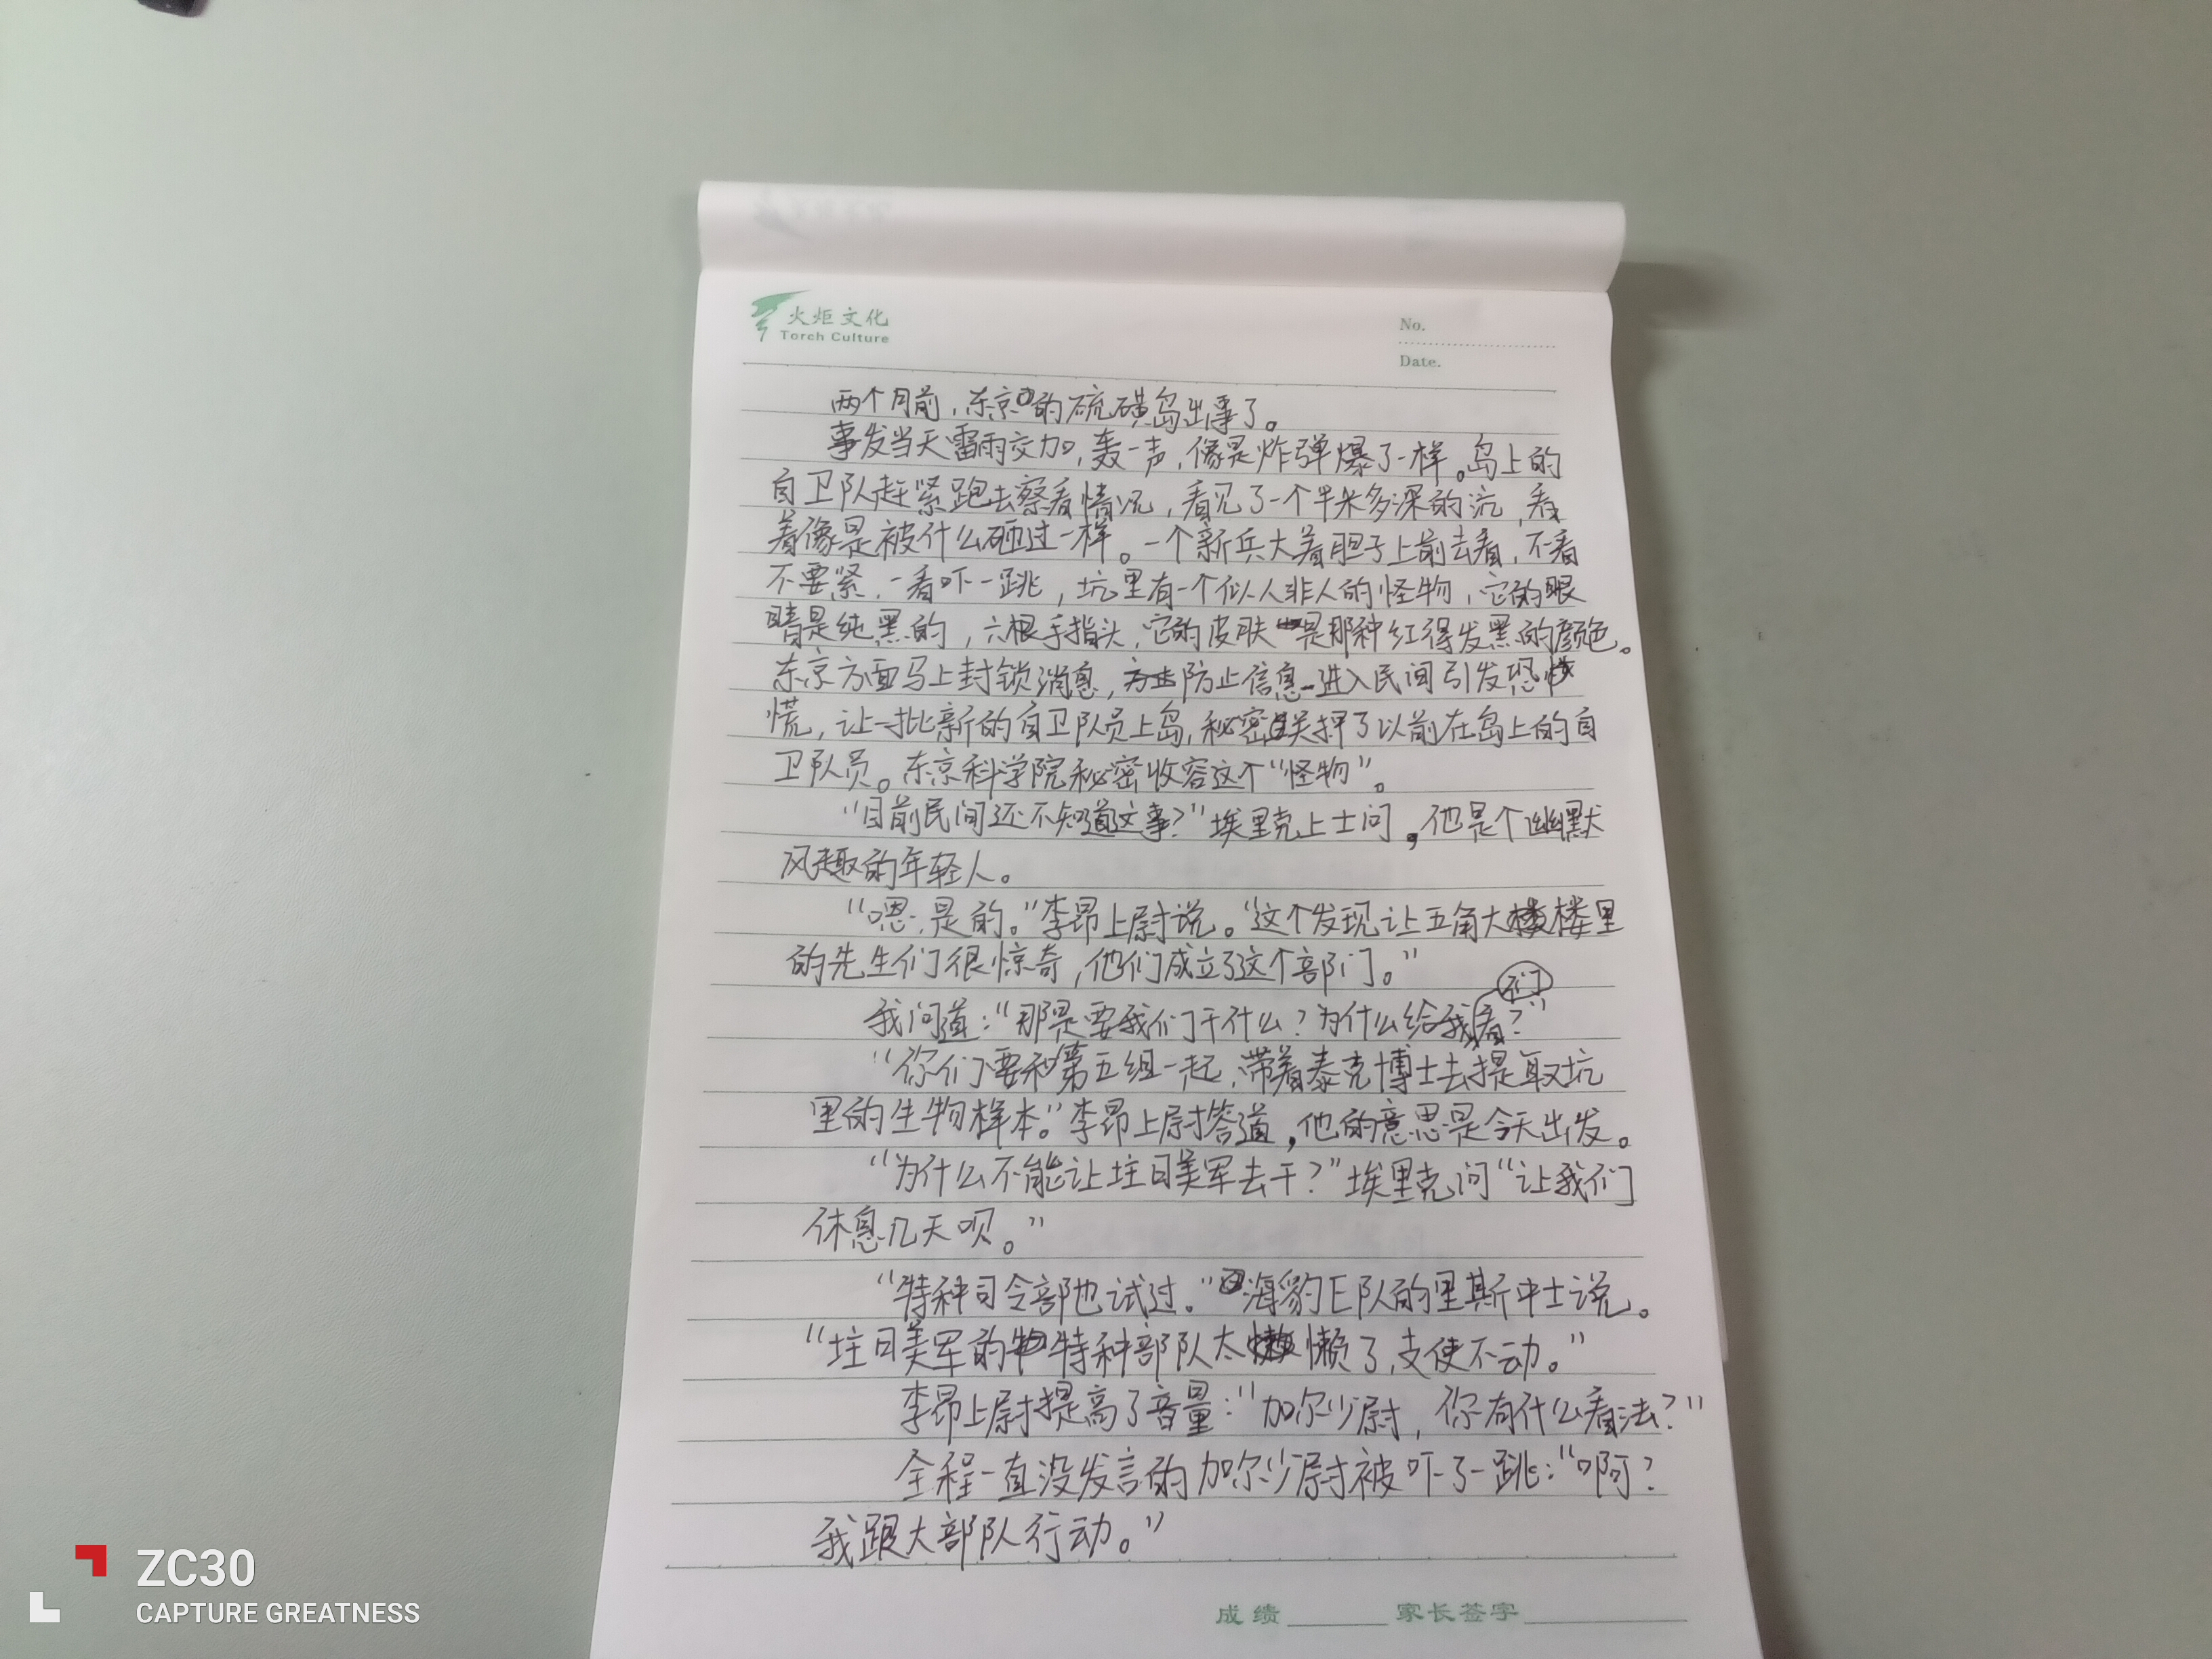 火炬文化
Torch Culture
No.
Date.
两个月前,东京的硫磺岛出事了。
事发当天雷雨交加,轰一声,像是炸弹爆了一样。岛上的
自卫队赶紧跑去察看情况,看见了一个半米多深的坑,看
着像是被什么砸过一样。一个新兵大着胆子上前去看,不看
不要紧,一看吓一跳,坑里有一个似人非人的怪物,它的眼
睛是纯黑的,六根手指头,它的皮肤是那种红得发黑的颜色。
东京方面马上封锁消息,防止信息进入民间引发恐
慌,让一批新的自卫队员上岛,秘密关押了以前在岛上的自
卫队员。东京科学院秘密收容这个“怪物”。
“目前民间还不知道这事?”埃里克上士问,他是个幽默
风趣的年轻人。
“嗯,是的。”李昂上尉说。“这个发现让五角大楼里
的先生们很惊奇,他们成立了这个部门。”
我问道:“那是要我们干什么?为什么给我们看?”
“你们要和第五组一起,带着泰克博士去提取坑
里的生物样本。”李昂上尉答道,他的意思是今天出发。
“为什么不能让驻日美军去干?”埃里克问“让我们
休息几天呗。”
“特种司令部也试过。”海豹E队的里斯中士说。
“驻日美军的特种部队太懒了,支使不动。”
李昂上尉提高了音量:“加尔少尉,你有什么看法?”
全程一直没发言的加尔少尉被吓了一跳:“啊?
我跟大部队行动。”
成绩 家长签字
ZC30
CAPTURE GREATNESS